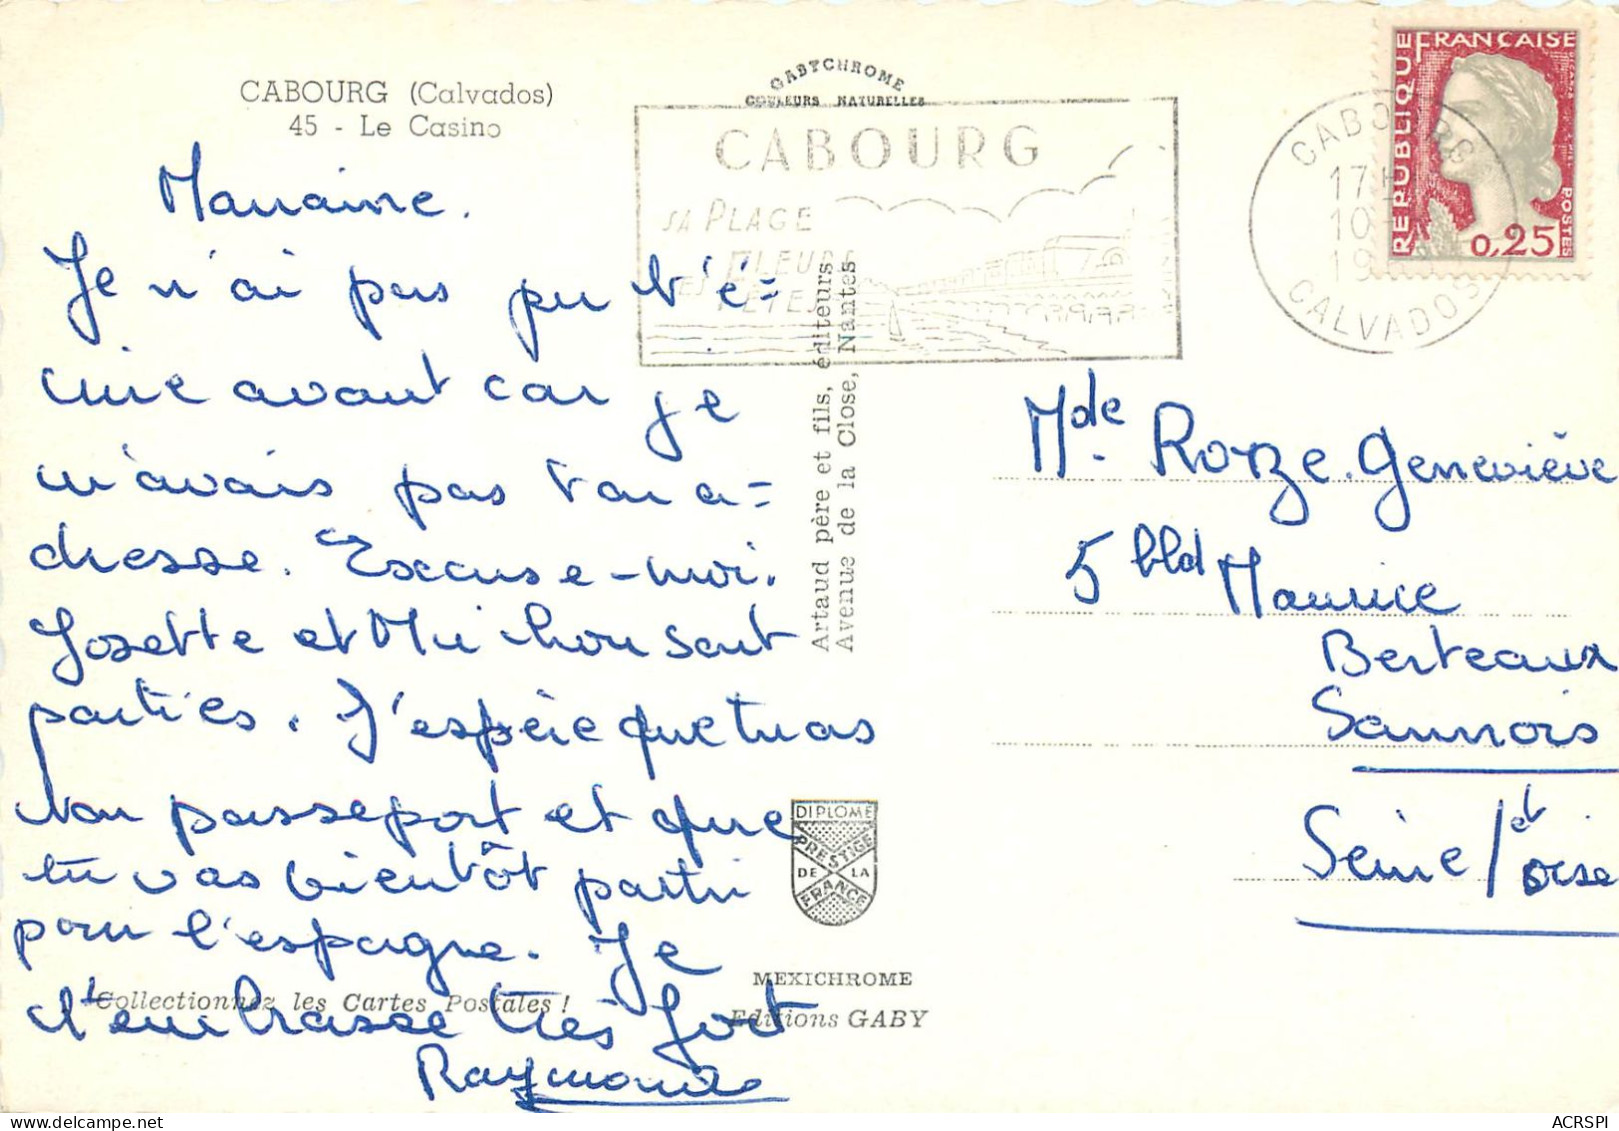 CABOURG (Calvados)
45 - Le Casino
GABYCHROME
COULEURS NATURELLES
CABOURG
SA PLAGE
FLEURS
FETES
CABOURG
17H
10
CALVADOS
REPUBLIQUE FRANÇAISE
POSTES
0,25
Marraine.
Je n'ai pas pu t'é=
crire avant car je
n'avais pas ton a=
dresse. Excuse-moi.
Josette et Michou sont
parties. J'espère que tu as
ton passeport et que
tu vas bientôt partir
pour l'espagne. Je
t'embrasse très fort
Raymonde
Collectionnez les Cartes Postales !
Artaud père et fils, éditeurs
Avenue de la Close, Nantes
DIPLOME
PRESTIGE
DE LA
FRANCE
MEXICHROME
Editions GABY
Mde. Rorze. Geneviève
5 bld Maurice
Berteaux
Sannois
Seine / et oise
ACRSPI